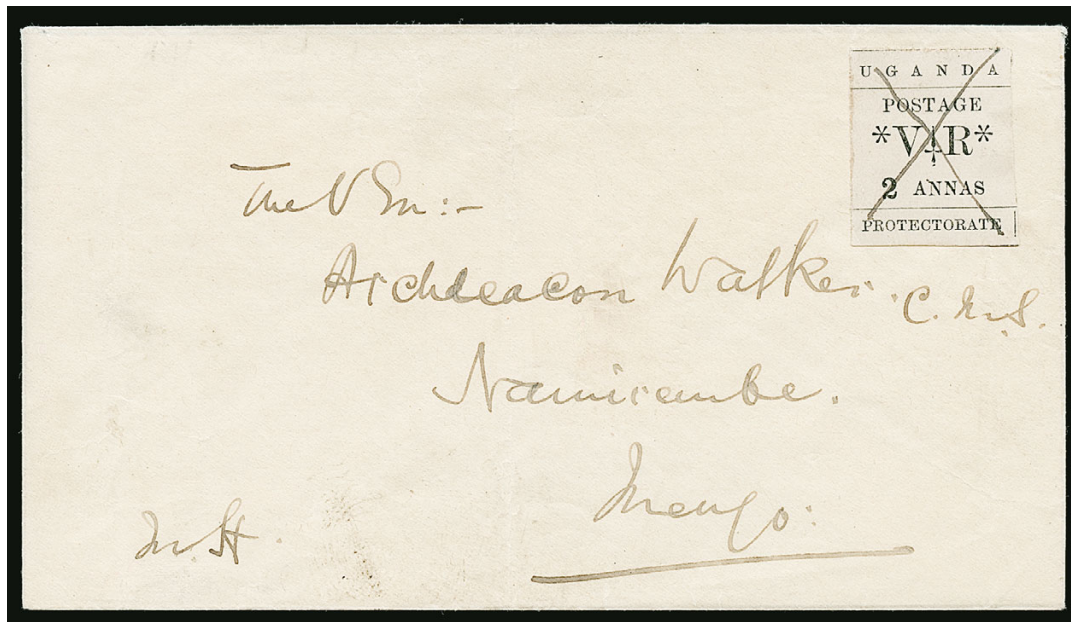 UGANDA
POSTAGE
*V R*
2 ANNAS
PROTECTORATE
The V En:-
Archdeacon Walker. C.M.S.
Namirembe.
Mengo:
M.H.